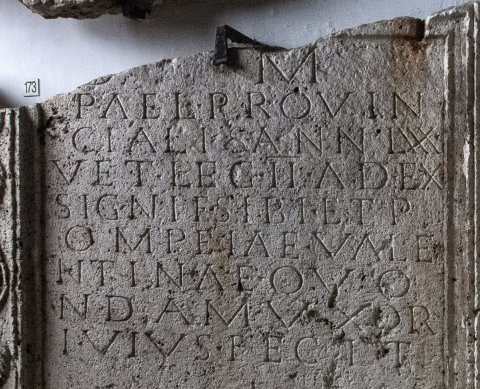 173
M
P AEL P R R OV IN
CIALIS ANN LXX
VET LEG II AD EX
SIGNIF SIBI ET P
OMPEIAE VALE
NTINAE QVO
NDAM VXOR
I VIVS FECIT